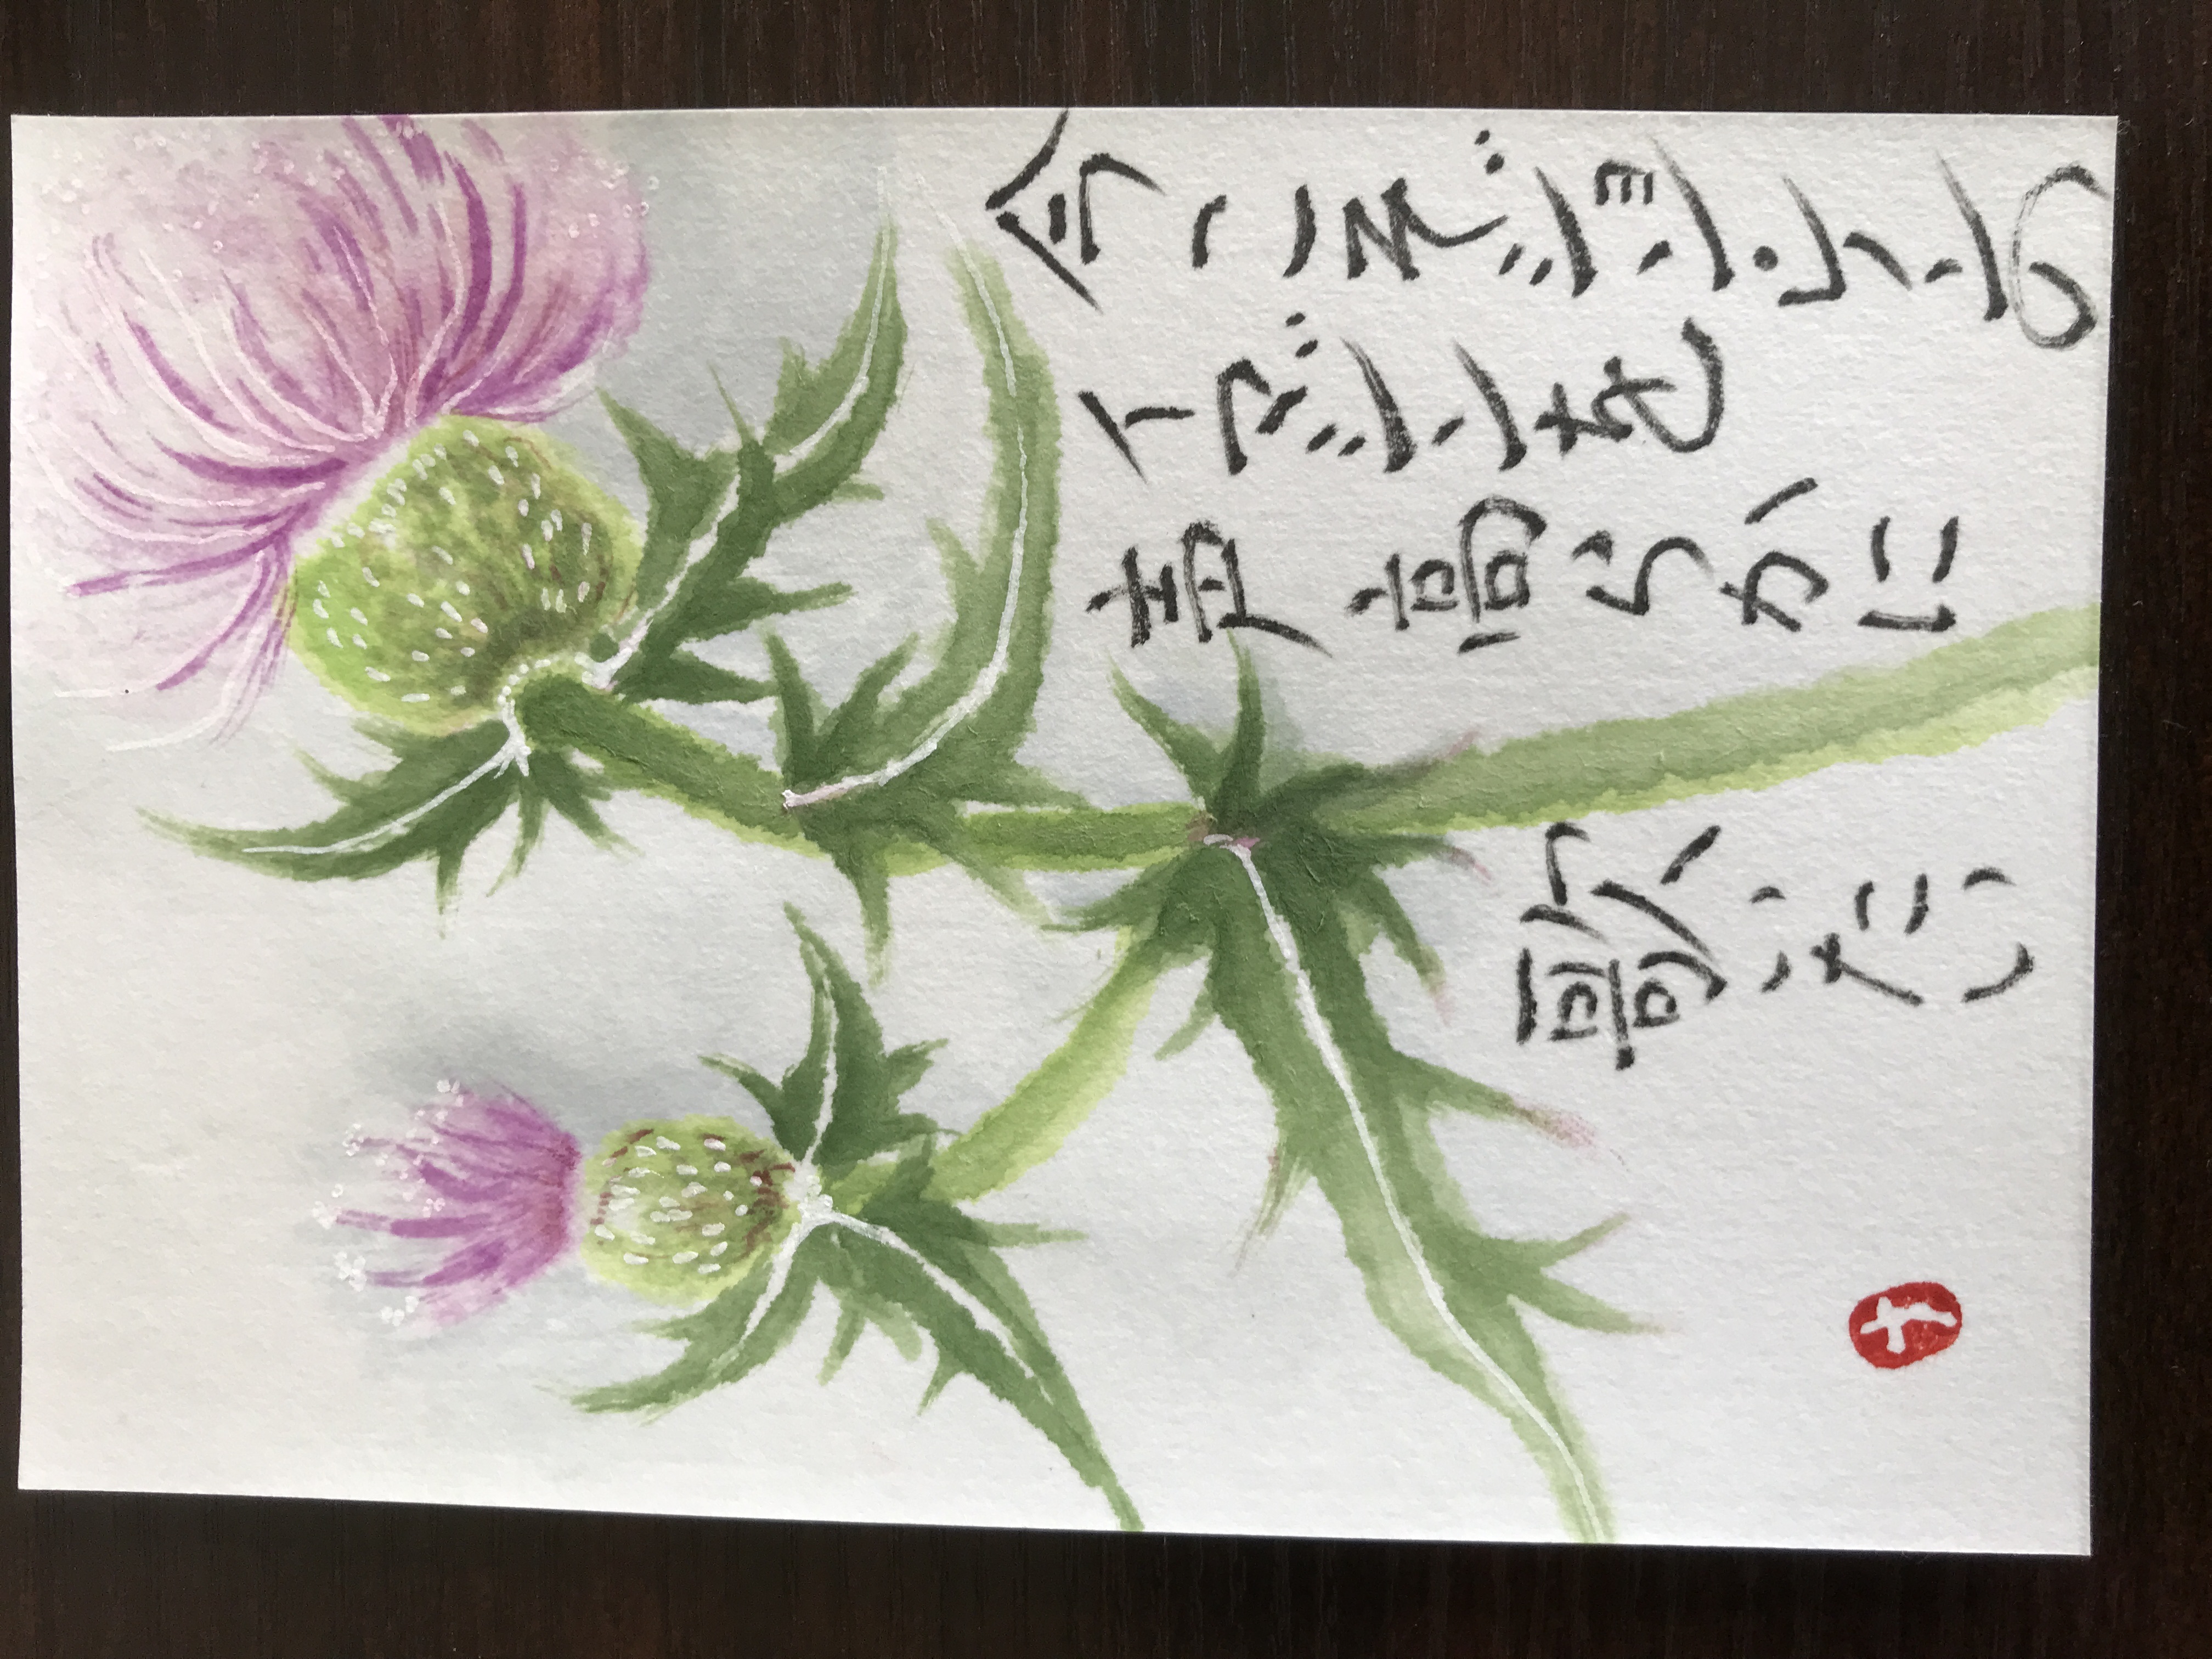 今こそジョン・レノンの
イマジンを
声高らかに
歌いたい
ナ